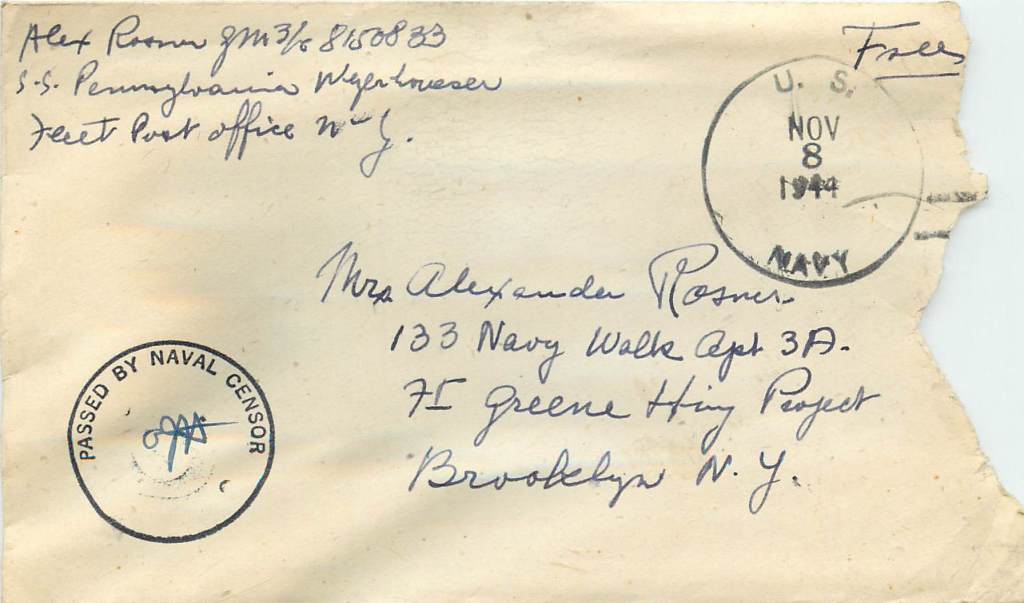 Alex Rosner GM 3/c 8150833
S.S. Pennsylvania
Fleet Post Office N-Y.
Free
U. S.
NOV
8
1944
NAVY
Mrs Alexander Rosner
133 Navy Walk Apt 3A.
Ft Greene Hsng Project
Brooklyn N. Y.
PASSED BY NAVAL CENSOR